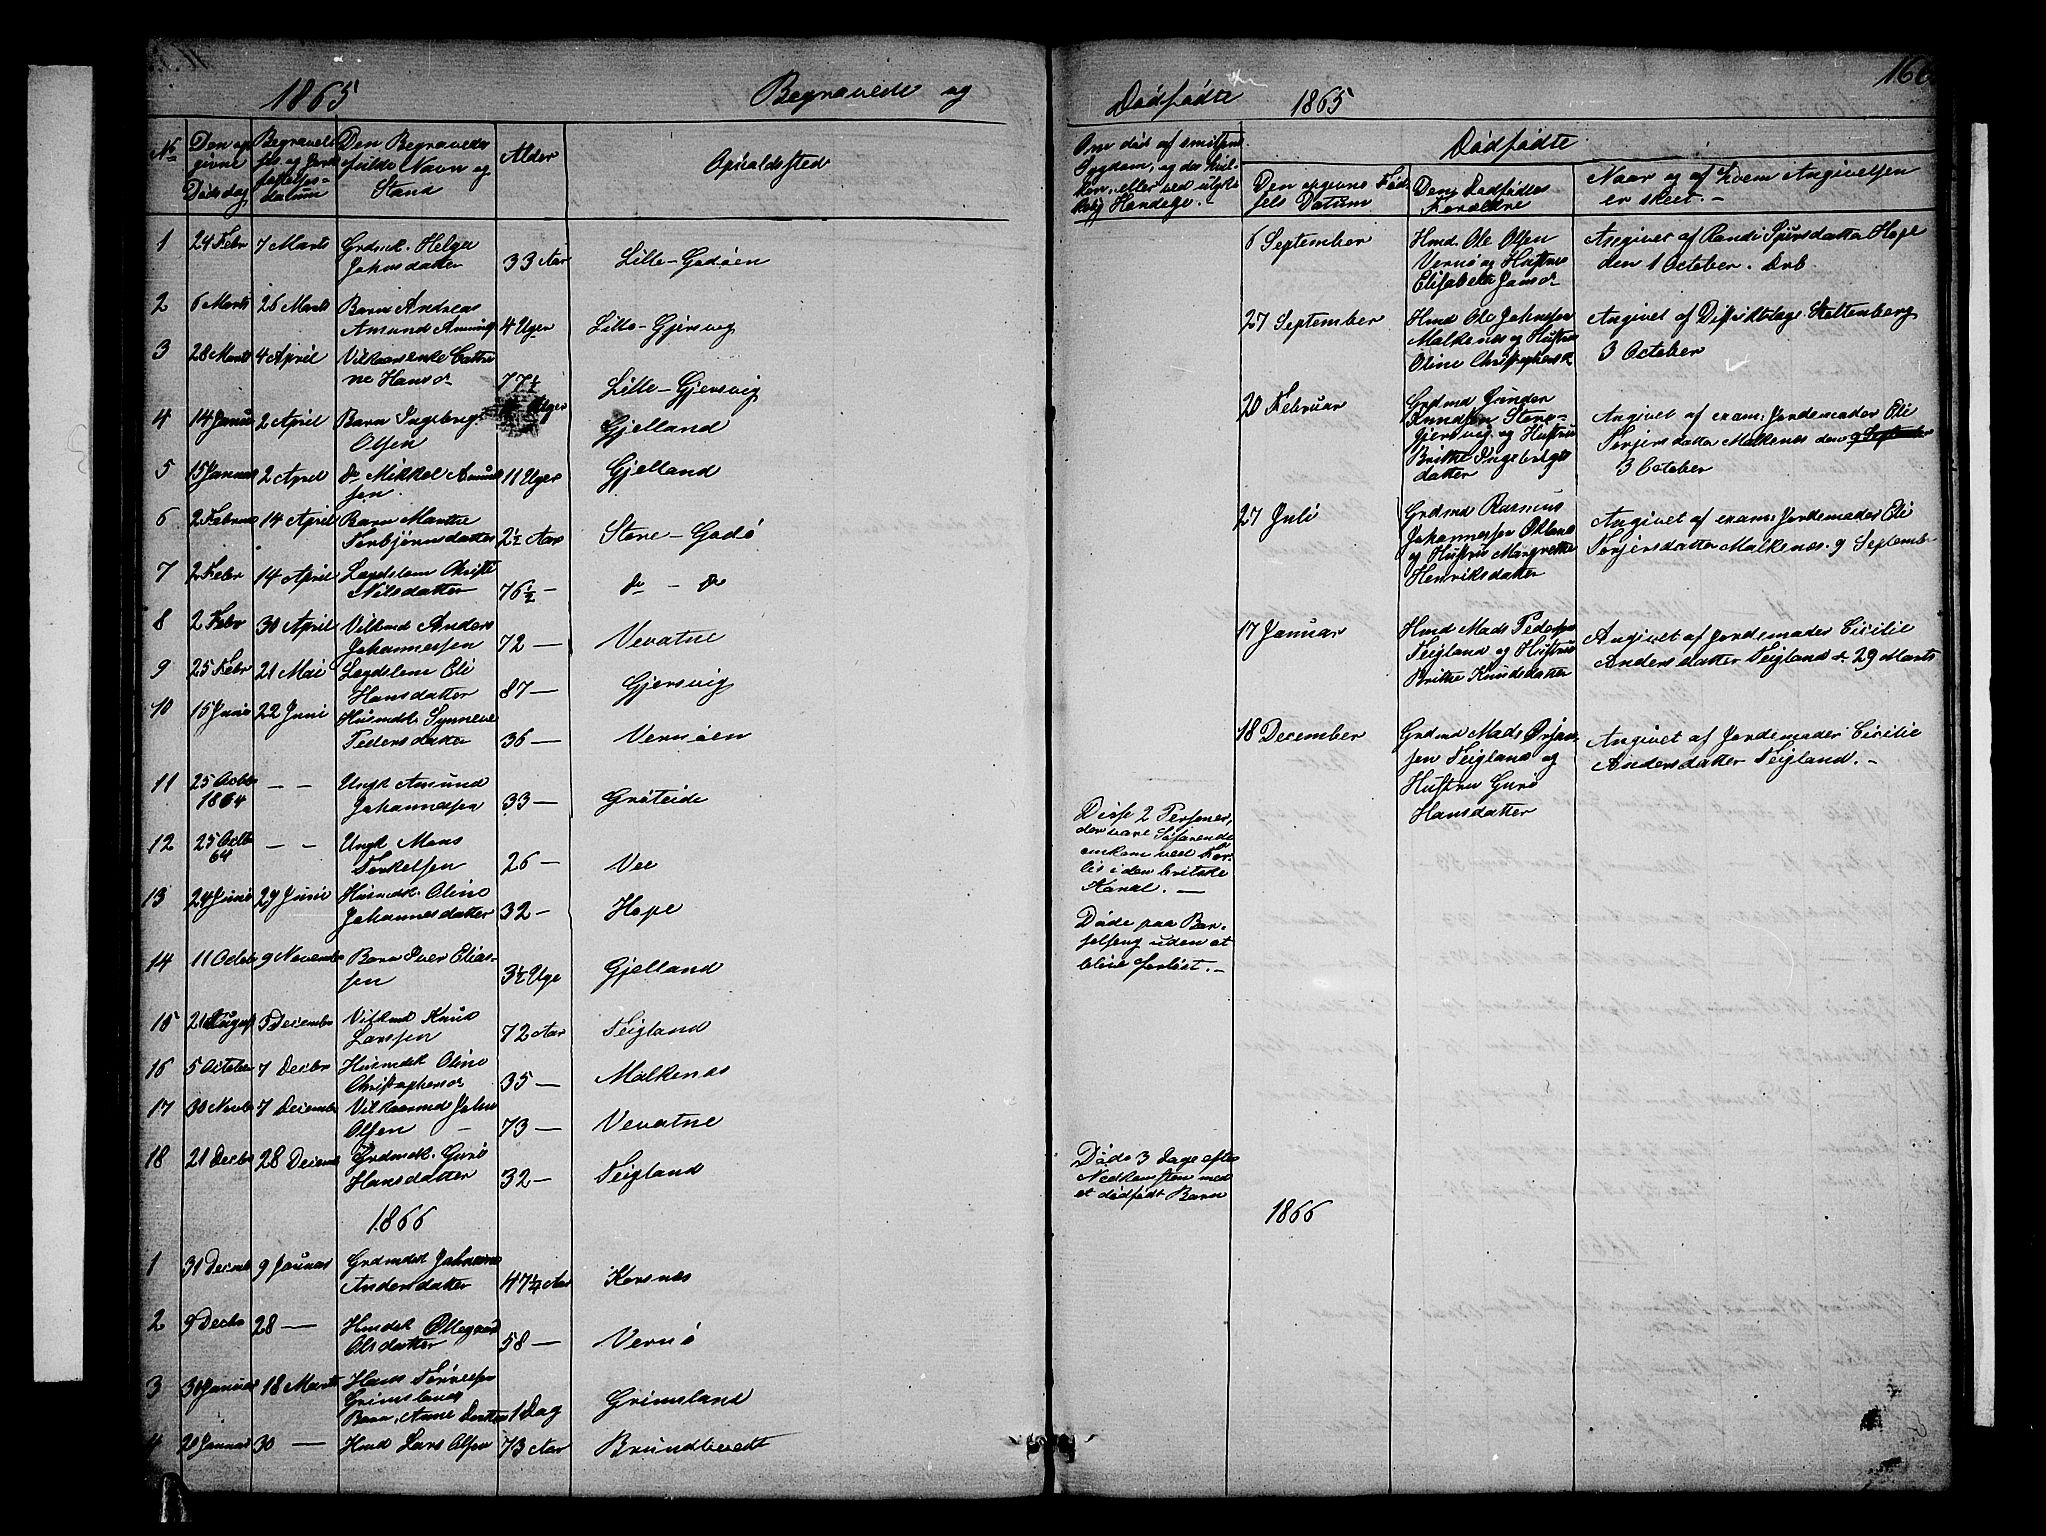 1865 Begravede og
Dødfødte 1865 166
No Den opgivne Dødsdag Begravelses og Jordfæstelsesdatum Den Begravedes fulde Navn og Stand Alder Opholdssted
Om død af smitsom Sygdom, og da hvilken, eller ved ulykkelig Hændelse.
Dødfødte
Den opgivne Fødsels Datum Den Dødfødtes Forældre Naar og af hvem Angivelsen er skeet.
1 24 Febr 7 Marts Grdmk. Helga
Johnsdatter 33 Aar Lille-Godøen
2 6 Marts 26 Marts Barn Andreas
Amund 4 Uger Lille-Gjersvig
3 28 Marts 4 April Vilkaarsenke
Hansd 77½ Lille-Gjersvig
4 14 Janu 2 April Barn Ingebrigt
Olsen Uger Gjelland
5 15 Januar 2 April do Mikkel Amund
sen 11 Uger Gjelland
6 2 Februar 14 April Barn Marthe
Torbjørnsdatter 2½ Aar Store-Godø
7 2 Febr 14 April Lægdslem Christi
Nilsdatter 76½ — do — do
8 2 Febr 30 April Vilkmd Anders
Johannessen 72 — Vevatne
9 25 Febr 21 Mai Legdslem Eli
Hansdatter 87 — Gjersvig
10 15 Juni 22 Juni Husmdk. Synneve
Pedersdatter 36 — Vernøen
11 25 Octbr
1864 — — Ungk Amund
Johannessen 33 — Grøteide
12 25 Octb
64 — — Ungk Mons
Torkelsen 26 — Vee
13 24 Juni 29 Juni Husmdk. Oline
Johannesdatter 32 — Hope
14 11 Octob 9 November Barn Iver Elias-
sen 3½ Uge Gjelland
15 21 August 5 Decembr Vilkmd Knud
Larssen 72 Aar Teigland
16 5 October 7 Decbr Husmdk Oline
Christophersd 35 — Malkenæs
17 30 Novbr 7 Decembr Vilkaarmd John
Olsen 73 — Vevatne
18 21 Decbr 28 Decemb Grdmdk. Guro
Hansdatter 32 — Teigland
1866
1 31 Decemb 9 Januar Grdmdk Johanna
Andersdatter 47¼ Aar Korsnæs
2 9 Decbr 28 — Husmdk Ollegaard
Olsdatter 58 — Vernø
3 30 Januar 18 Marts Hans Tørressen
Grimslands
Barn, Anne Dorthea 1 Dag Grimsland
4 20 Januar 30 — Husmd Lars Olsen 73 Aar Brundtvedt
Disse 2 Personer,
der vare Søfarende
omkom ved For-
lis i den britiske
Kanal. —
Døde paa Bar-
selseng uden at
blive forløst. —
Døde 3 Dage efter
Nedkomsten med
et dødfødt Barn
6 September Husmd. Ole Olsen
Vernø og Hustru
Elisabeth Jansd Angivet af Randi Sjursdatter Hope
den 1 October.
27 September Husmd Ole Johnssen
Malkenæs og Hustru
Oline Christophersd Angivet af Distriktslæge Stoltenberg
3 October
20 Februar Grdmd Gunder
Knudsen Store-
Gjersvig og Hustru
Britha Ingebrigts
datter Angivet af exam: Jordemoder Eli
Torjersdatter Malkenæs den 9 September
3 October
27 Juli Grdmd Rasmus
Johannessen Økland
og Hustru Margrethe
Henriksdatter Angivet af exam: Jordemoder Eli
Torjersdatter Malkenæs. 9 September
17 Januar Husmd Mads Pedersen
Teigland og Hustru
Brithe Knudsdatter Angivet af Jordemoder Cicilie
Andersdatter Teigland d. 29 Marts
18 December Grdmd Mads Ørjan-
sen Teigland og
Hustru Guro
Hansdatter Angivet af Jordemoder Cicilie
Andersdatter Teigland. —
1866